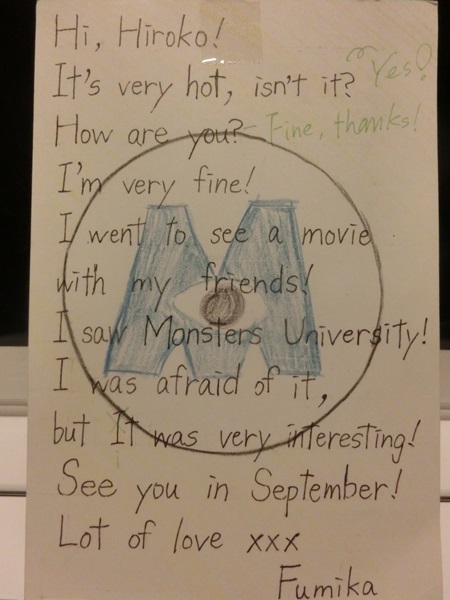 Hi, Hiroko!
It's very hot, isn't it? Yes!
How are you? Fine, thanks!
I'm very fine!
I went to see a movie
with my friends!
I saw Monsters University!
I was afraid of it,
but It was very interesting!
i
See you in September!
Lot of love xxx
Fumika
M